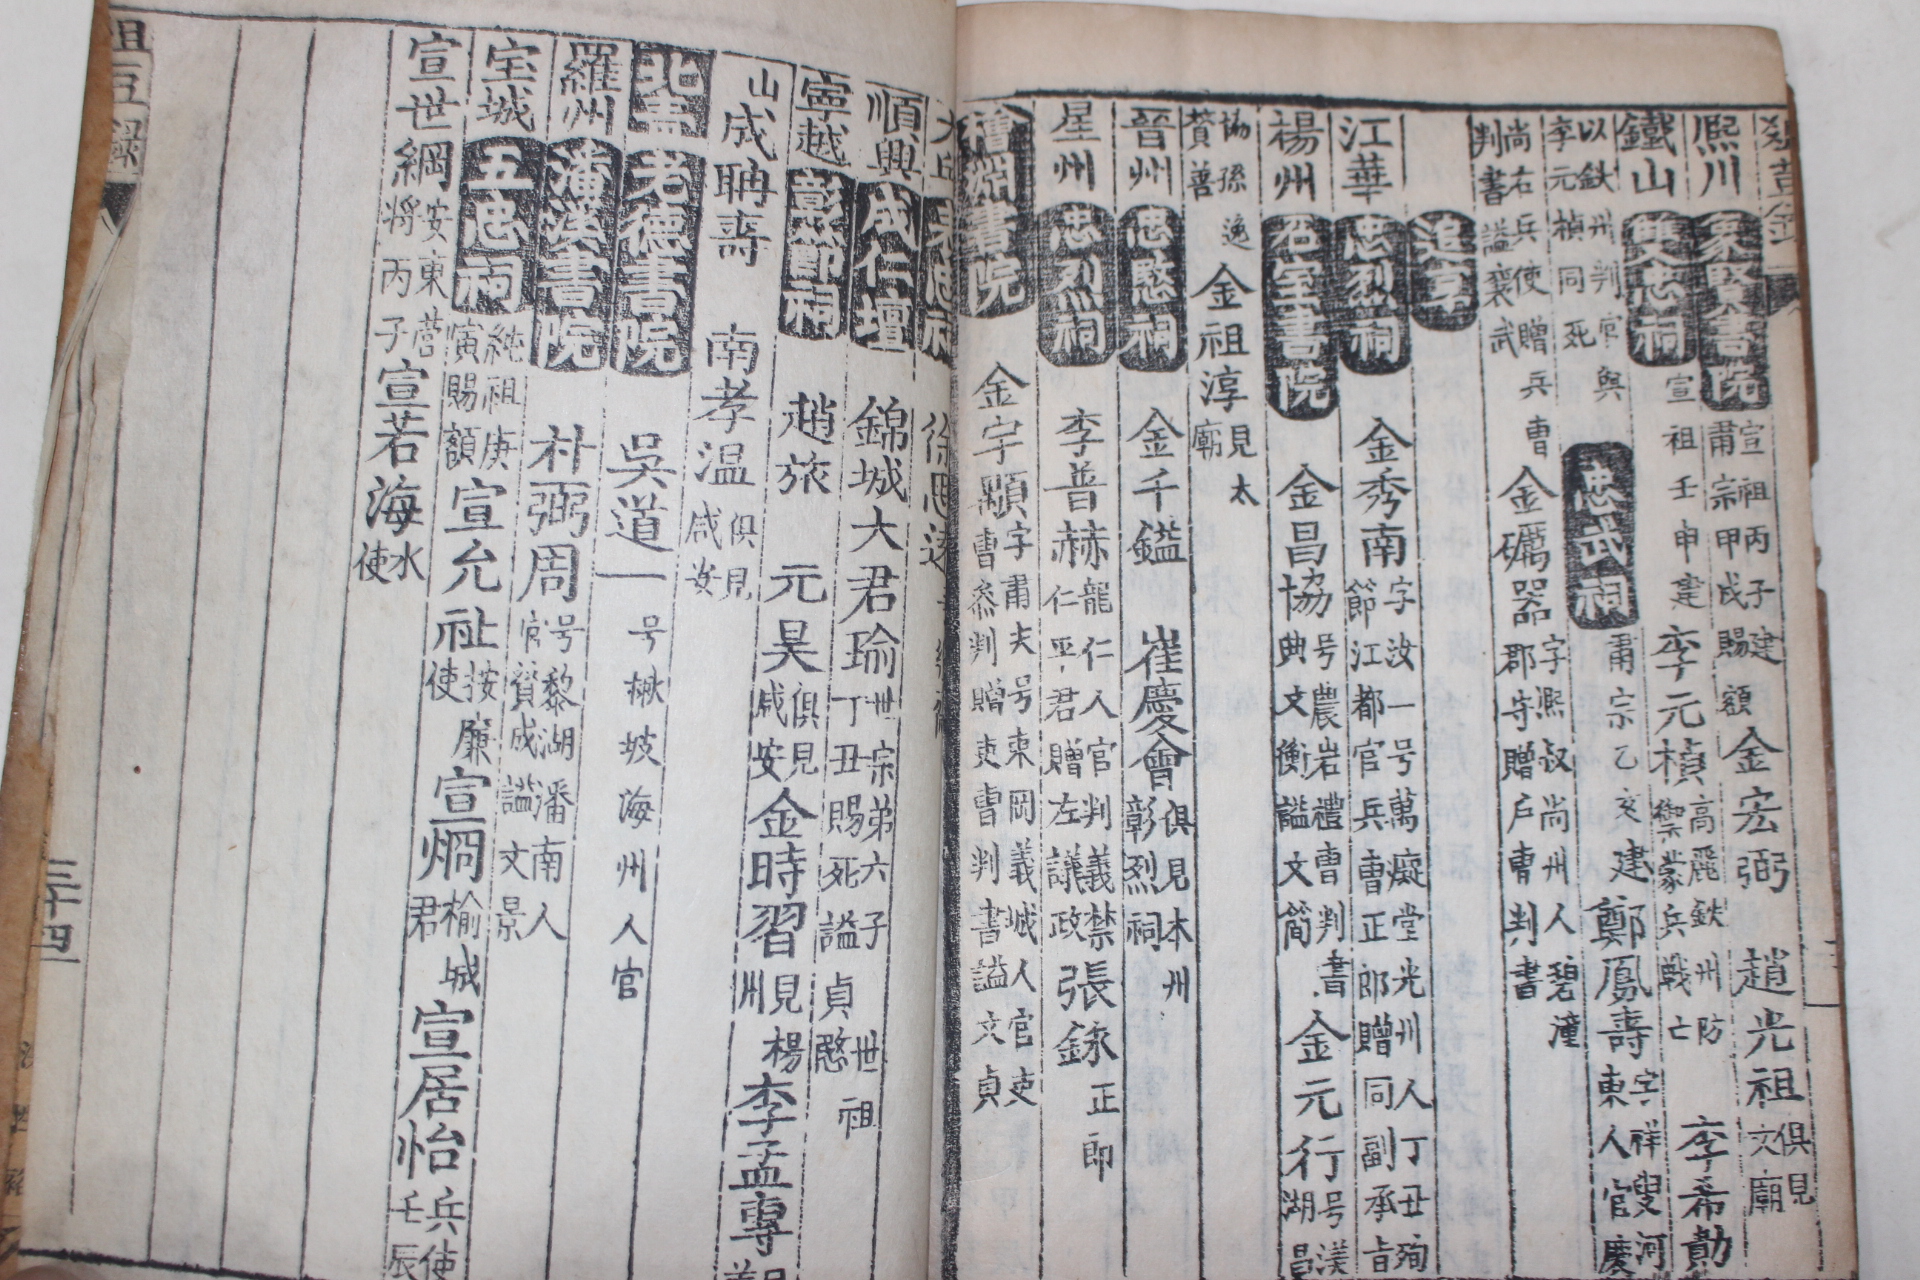 熙川 象賢書院 宣祖丙子建肅宗甲戌賜額 金宏弼 趙光祖 俱見文廟
鐵山 雙忠祠 宣祖壬申建 李元楨 高麗鉄州防禦蒙兵戰亡 李希勣
以鉄州判官與李元楨同死 忠武祠 肅宗乙亥建 鄭鳳壽 字祥叟河東人官慶
尚右兵使贈兵曹判書謚襄武 金礪器 字熙叔尚州人碧潼郡守贈戶曹判書
追享
江華 忠烈祠 金秀南 字汝一号萬癡堂光州人丁丑殉節江都官兵曹正郎贈同副承旨
楊州 石室書院 金昌協 号農岩禮曹判書典文衡謚文簡 金元行 号渼湖昌
協孫逸贊善 金祖淳 見太廟
晉州 忠愍祠 金千鎰 崔慶會 俱見本州彰烈祠
星州 忠烈祠 李普赫 龍仁人官判義禁仁平君贈左議政 張錄 正郎
書院 金宇顒 字肅夫号東岡義城人官吏曹參判贈吏曹判書謚文貞
徐思遠
順興 成仁壇 錦城大君瑜 世宗弟六子世祖丁丑賜死謚貞愍
寧越 彰節祠 趙旅 元昊 俱見咸安 金時習 見楊州 李孟專
山 成聃壽 南孝温 俱見咸安
北靑 老德書院 吳道一 号楸坡海州人官
羅州 潘溪書院 朴弼周 号黎湖潘南人官賛成謚文景
宝城 五忠祠 純祖庚寅賜額 宣允祉 按廉使 宣炯 榆城君 宣居怡 兵使壬辰
宣世綱 安東營將丙子 宣若海 水使
三十四